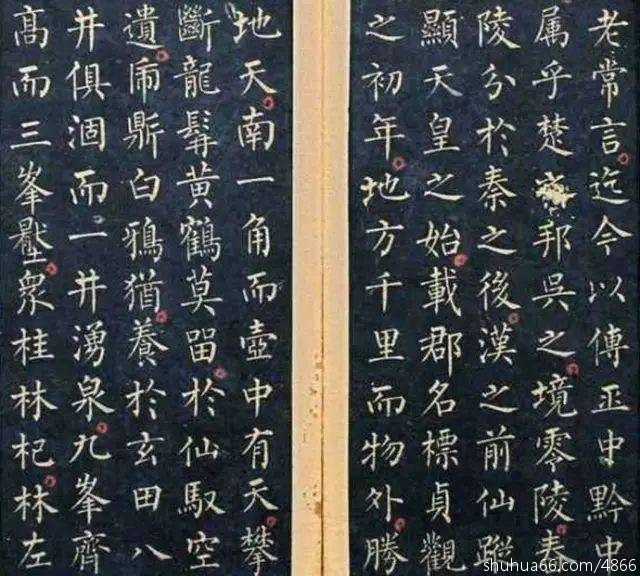 老常言迄今以傳正中黔中
属乎楚邦吳之境零陵春
陵分於秦之後漢之前仙蹤
顯天皇之始載郡名標貞觀
之初年地方千里而物外勝
地天南一角而壺中有天攀
斷龍髯黃鶴莫留於仙馭空
遺鼎白鴉猶養於玄田八
井俱涸而一井湧泉九峯齊
高而三峯壓眾桂林杞林左
shuhua66.com/4866